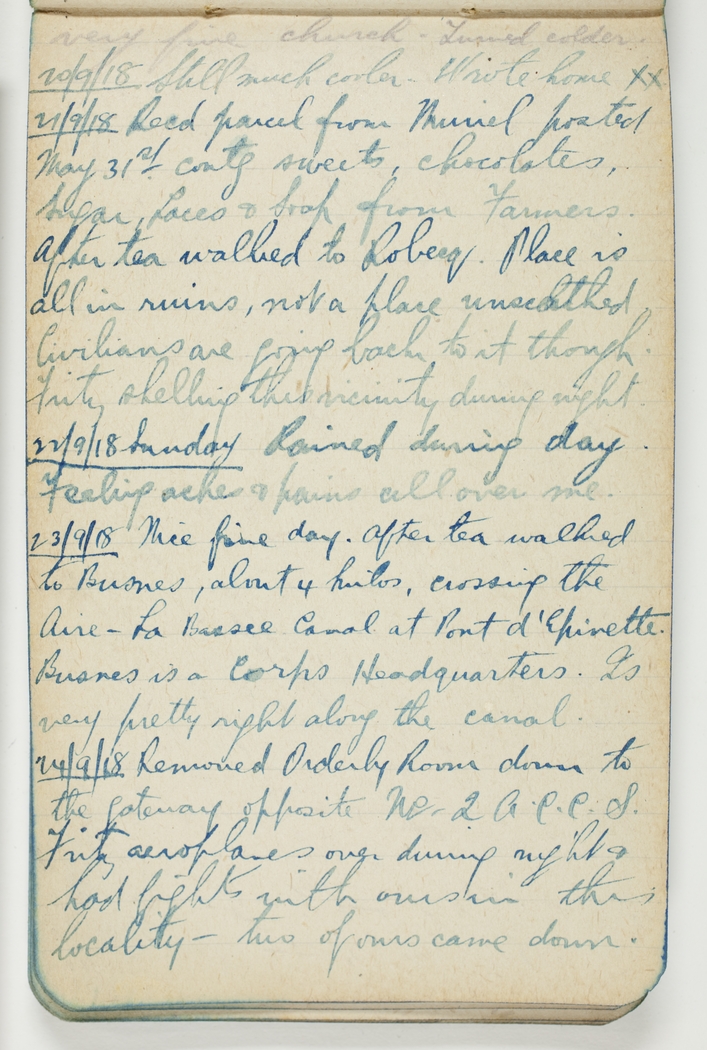 very fine church - Turned colder.
20/9/18 Still much cooler - Wrote home XX
21/9/18 Recd parcel from Muriel posted
May 31st contg sweets, chocolates,
Sugar, Laces & Soap from Farmers.
After tea walked to Robecq. Place is
all in ruins, not a place unscathed.
Civilians are going back to it though.
Fritz shelling this vicinity during night.
22/9/18 Sunday Rained during day.
Feeling aches & pains all over me.
23/9/18 Nice fine day. After tea walked
to Busnes, about 4 kilos, crossing the
Aire - La Bassee Canal at Pont d'Epinette.
Busnes is a Corps Headquarters. Is
very pretty right along the canal.
24/9/18 Removed Orderly Room down to
the gateway opposite No - 2 A.C.C.S.
Fritz aeroplanes over during night &
had fights with ours in this
locality - two of ours came down.